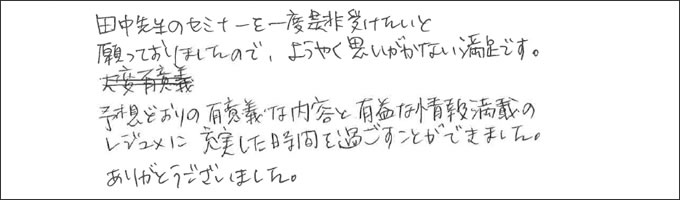 田中先生のセミナーを一度是非受けたいと
願っておりましたので、ようやく思いがかない満足です。
大変有意義
予想どおりの有意義な内容と有益な情報満載の
レジュメに充実した時間を過ごすことができました。
ありがとうございました。